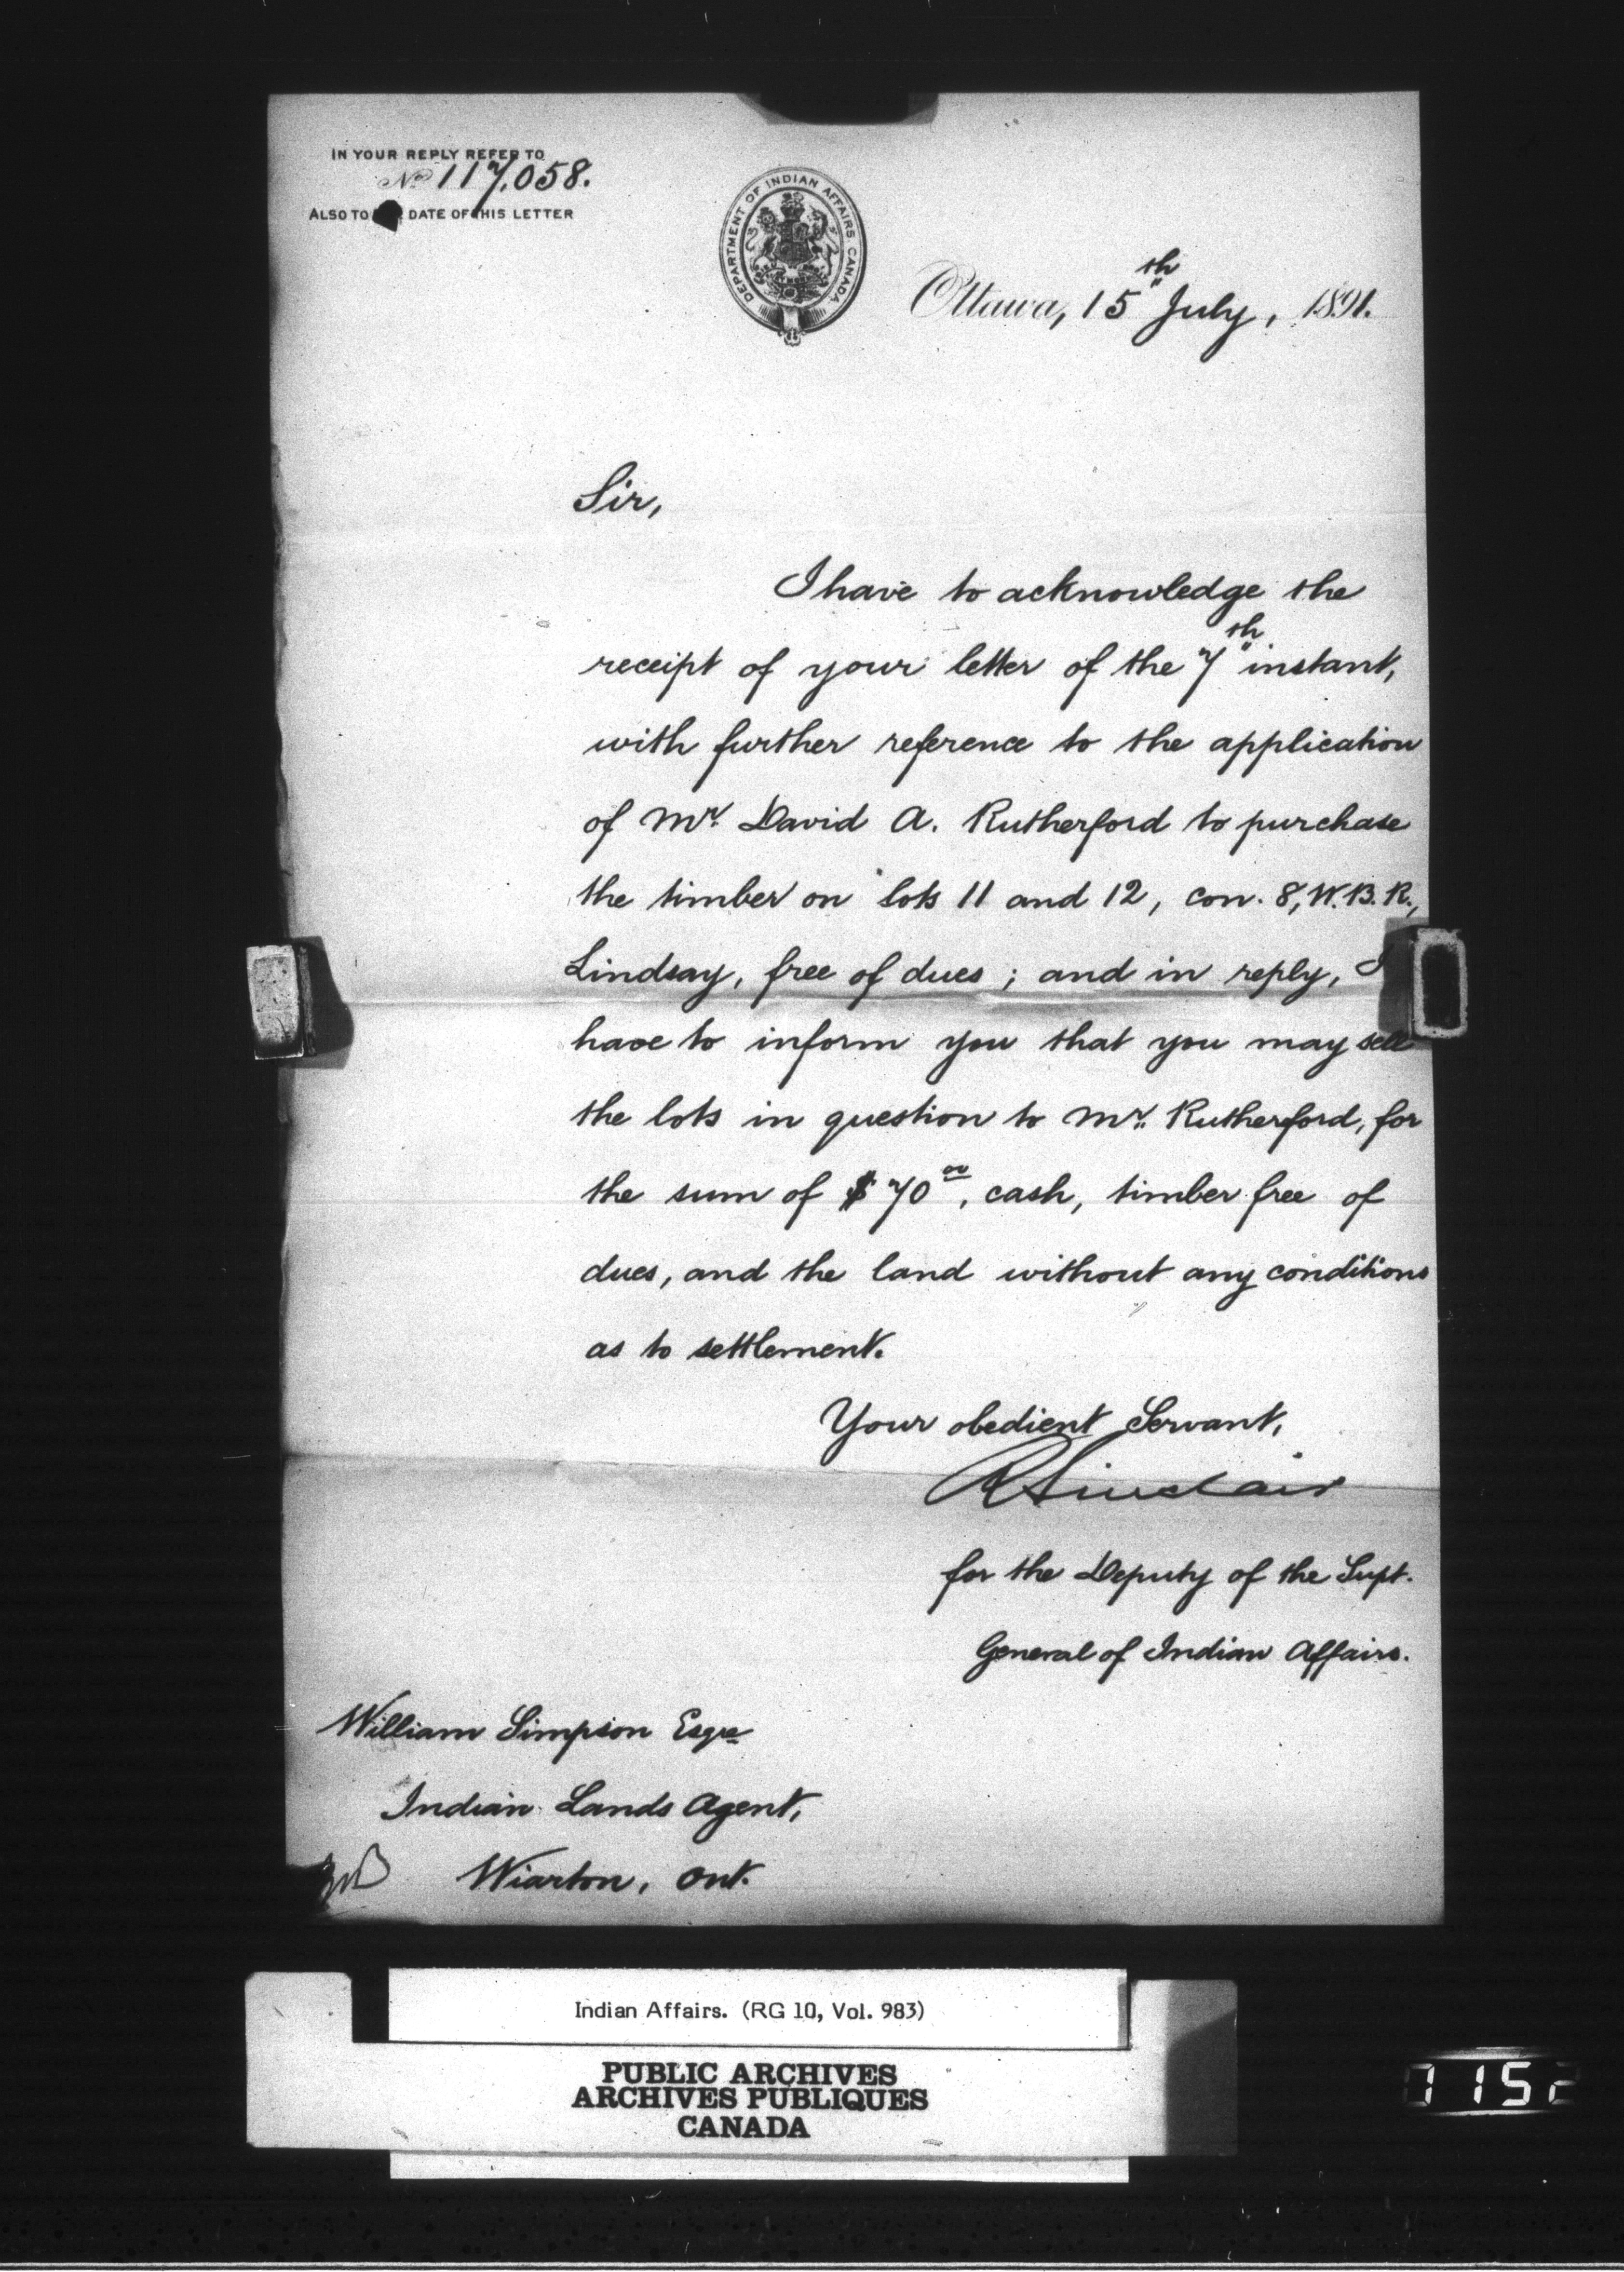 IN YOUR REPLY REFER TO
No 117,058.
ALSO TO DATE OF THIS LETTER
DEPARTMENT OF INDIAN AFFAIRS. CANADA
Ottawa, 15th July, 1891.
Sir,
I have to acknowledge the
receipt of your letter of the 7th instant,
with further reference to the application
of Mr. David A. Rutherford to purchase
the timber on lots 11 and 12, con. 8, W.B.R.,
Lindsay, free of dues; and in reply, I
have to inform you that you may sell
the lots in question to Mr. Rutherford, for
the sum of $70 00, cash, timber free of
dues, and the land without any conditions
as to settlement.
Your obedient Servant,
R Sinclair
for the Deputy of the Supt.
General of Indian Affairs.
William Simpson Esqre
Indian Lands Agent,
Wiarton, Ont.
Indian Affairs. (RG 10, Vol. 983)
PUBLIC ARCHIVES
ARCHIVES PUBLIQUES
CANADA
1152